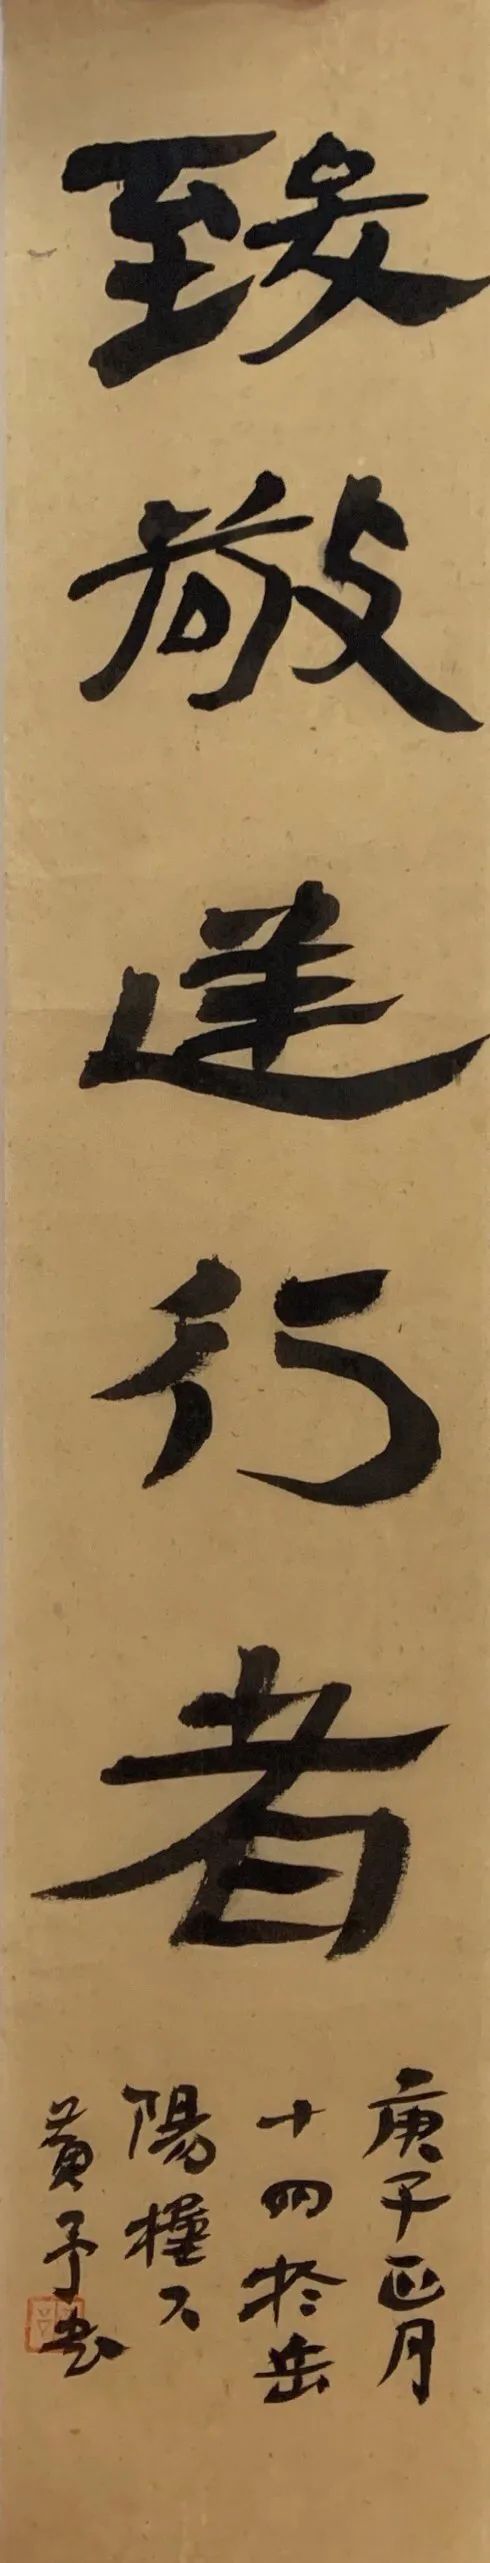 致敬逆行者
庚子正月
十四於岳
陽樓下
黄予书